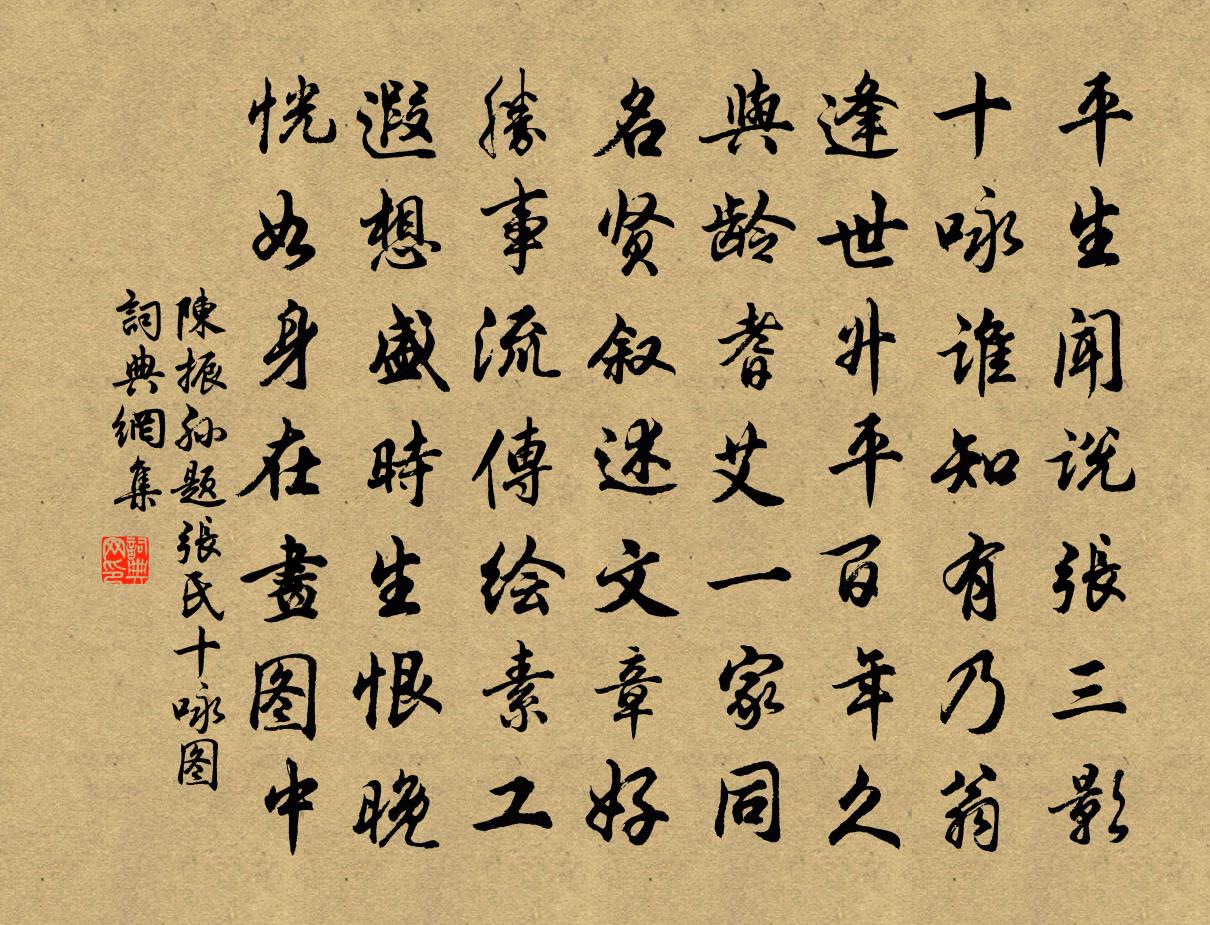 平生闻说張三影
十咏谁知有乃翁
逢世升平百年久
與龄耆艾一家同
名贤叙述文章好
勝事流傳绘素工
遐想盛時生恨晚
恍如身在畫图中
陳振孙题張氏十咏图
詞典網集
詞典网印